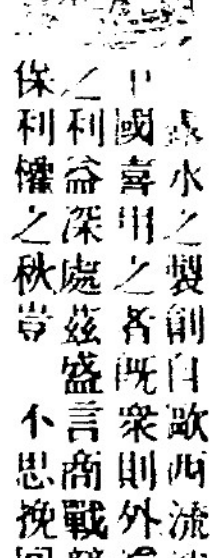 水之製創自歐西流
中國喜用之者既衆則外
之利益深處茲盛言商戰
保利權之秋豈　不思挽